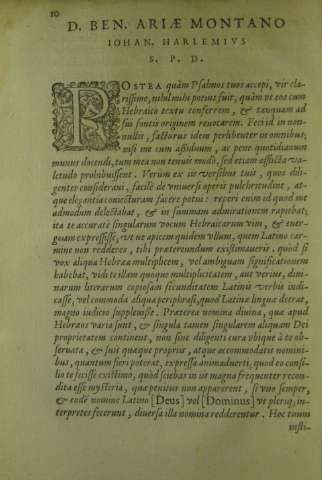 10
D. BEN. ARIÆ MONTANO
IOHAN. HARLEMIVS
S. P. D.
POSTEA quàm Psalmos tuos accepi, vir cla-
rissime, nihil mihi potius fuit, quàm vt eos cum
Hebraico textu conferrem, & tanquam ad
sui fontis originem reuocarem. Feci id in non-
nullis, facturus idem perlibenter in omnibus,
nisi me cum assiduum, ac pene quotidianum
munus docendi, tum mea non tenuis modò, sed etiam afficta va-
letudo prohibuissent. Verùm ex iis versibus tuis, quos dili-
genter consideraui, facilè de vniuersi operis pulchritudine, at-
que elegantia coniecturam facere potui: reperi enim id quod me
admodum delectabat, & in summam admirationem rapiebat,
ita te accuratè singularum vocum Hebraicarum vim, & ener-
geiam expressisse, vt ne apicem quidem vllum, quem Latino car-
mine non redderes, tibi prætereundum existimaueris. quod si
vox aliqua Hebræa multiplicem, vel ambiguam significationem
habebat, vidi te illam quoque multiplicitatem, aut verius, diui-
narum literarum copiosam fecunditatem Latinis verbis indi-
casse, vel commoda aliqua periphrasi, quod Latinæ linguæ deerat,
magno iudicio suppleuisse. Præterea nomina diuina, quæ apud
Hebræos varia sunt, & singula tamen singularem aliquam Dei
proprietatem continent, non sine diligenti cura vbique à te ob-
seruata, & suis quæque propriis, atque accommodatis nomini-
bus, quantum fieri poterat, expressa animaduerti. quod eo consi-
lio te fecisse existimo, quòd sciebas in iis magna frequenter recon-
dita esse mysteria, quæ penitus non apparerent, si vno semper,
& eodē nomine Latino [Deus] vel [Dominus] vt pleriq; in-
terpretes fecerunt, diuersa illa nomina redderentur. Hoc tuum
insti-